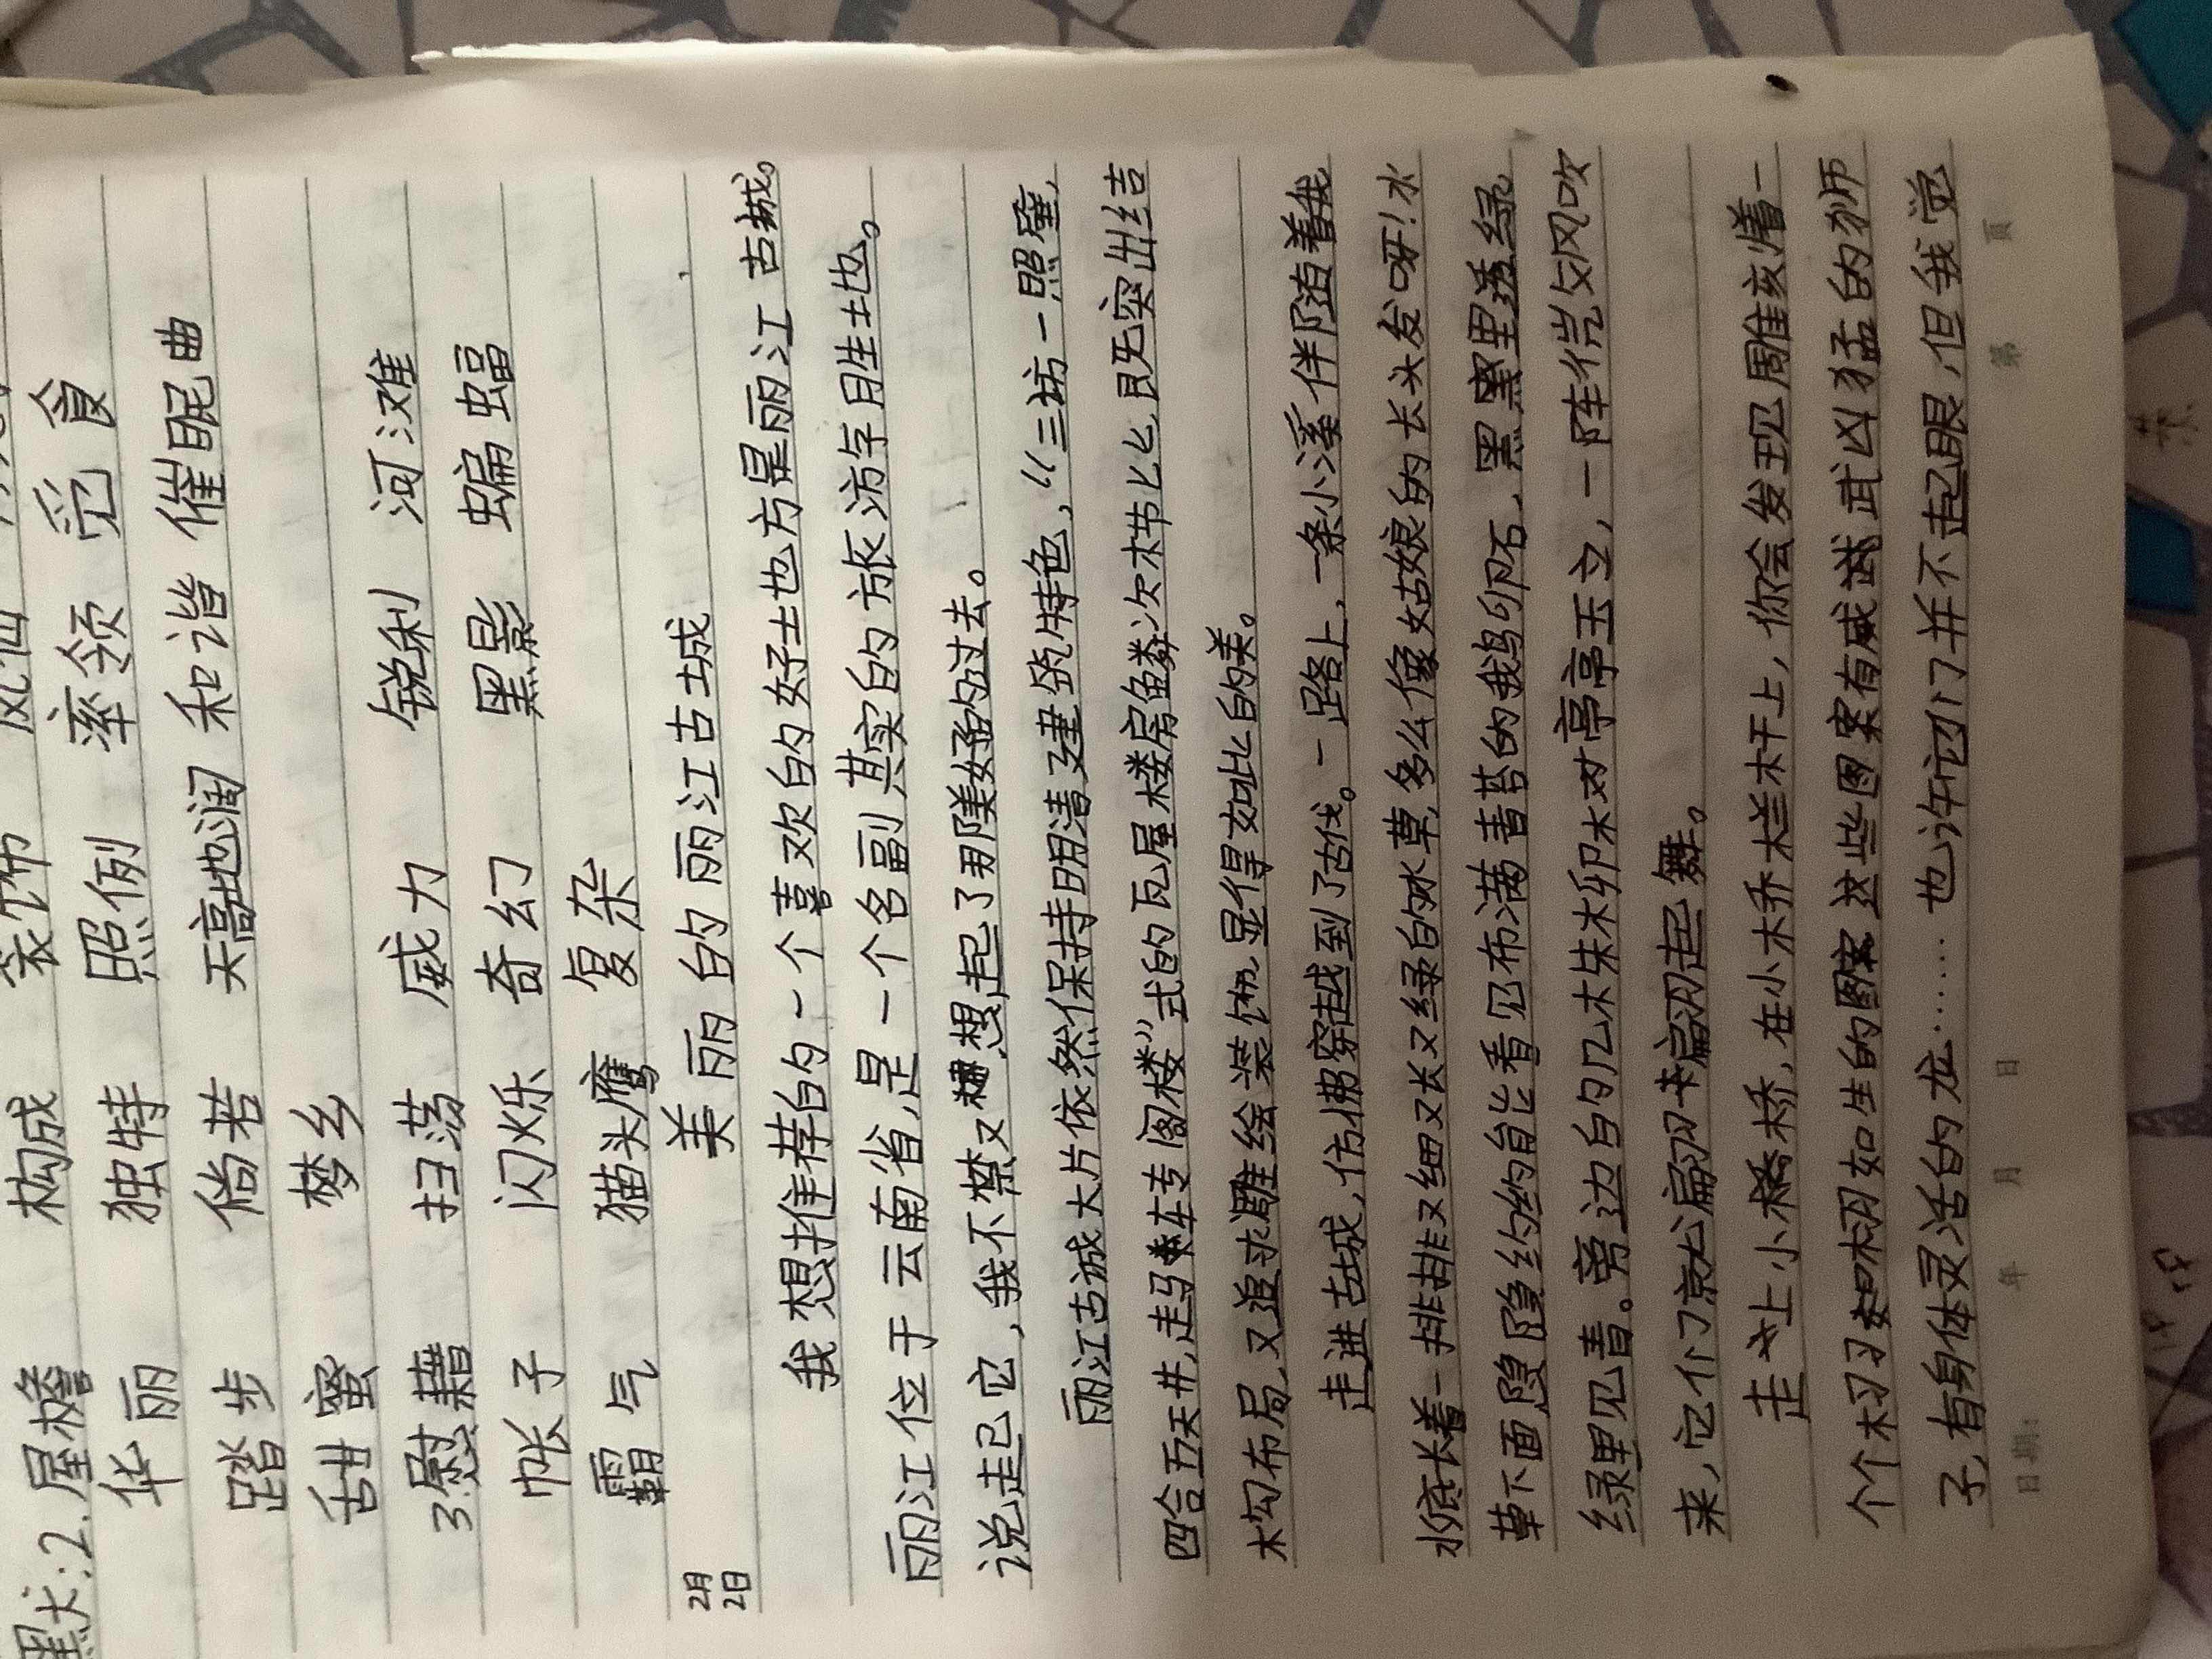 黑犬:2.屋檐 构成 装饰
华丽 独特 照例 率领 觅食
踏步 倘若 天高地阔 和谐 催眠曲
甜蜜 梦乡
3慰藉 扫荡 威力 锐利 河滩
帐子 闪烁 奇幻 黑影 蝙蝠
霸气 猫头鹰 复杂
2月2日
美丽的丽江古城
我想推荐的一个喜欢的好地方是丽江古城。
丽江位于云南省,是一个名副其实的旅游字胜地。
说起它,我不禁又想起了那美好的过去。
丽江古诚大片依然保持明清建筑特色,“三坊一照壁,
四合五天井,走马转阁楼”式的瓦屋楼房鳞次栉比,既突出结
构布局,又追求雕绘装饰,显得如此的美。
走进古城,仿佛穿越到了古代。一路上,一条小溪伴随着我
水底长着一排排又细又长又绿的水草,多么像姑娘的长头发呀!水
草下面隐隐约约能看见布满青苔的鹅卵石,黑里透绿,
绿里见青。旁边的几株柳树亭亭玉立,一阵微风吹
来,它们就翩翩起舞。
走上小桥,在小桥栏杆上,你会发现雕刻着一
个个栩栩如生的图案,这些图案有威武凶猛的狮
子,有身体灵活的龙……也许它们并不起眼,但我觉
日期: 年 月 日 第 頁